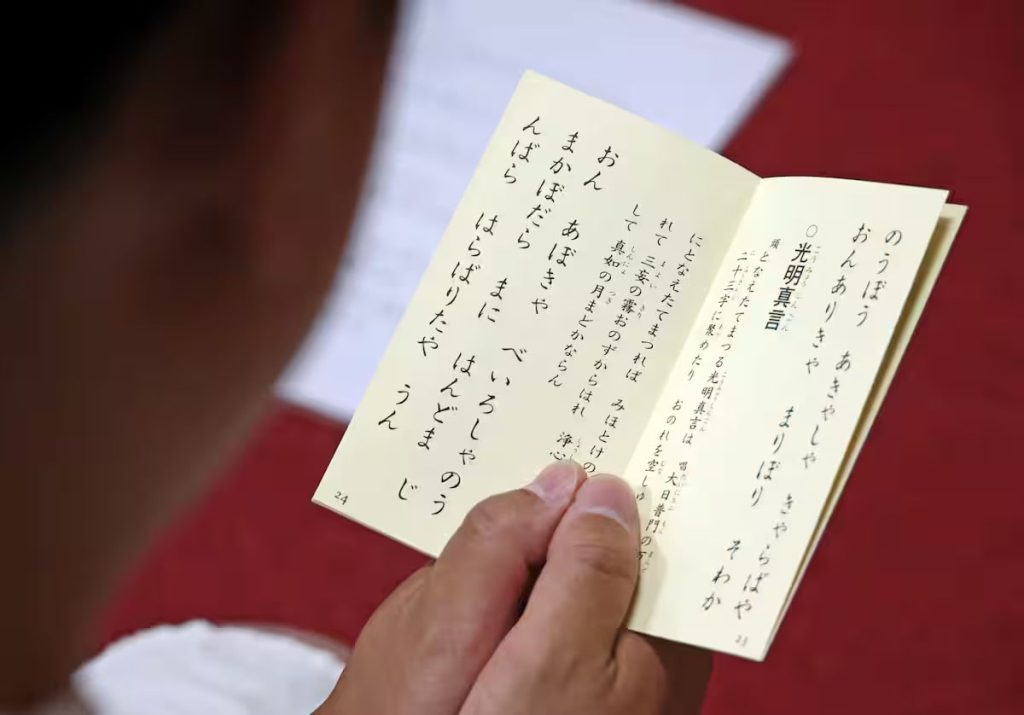 のうぼう　あきやしや　きやらばや
おんありきや　まりぼり　そわか
○光明真言
となえたてまつる光明真言は　大日普門の
二十三字に聚めたり　おのれを空しゅ
23
にとなえたてまつれば　みほとけの
れて　三妄の霧おのずからはれ　浄心
して　真如の月まどかならん
おん　あぼきや　べいろしやのう
まかぼだら　まに　はんどま　じ
んばら　はらばりたや　うん
24